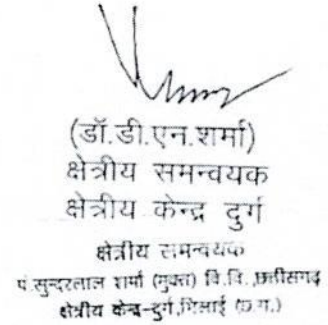 (डॉ.डी.एन.शर्मा)
क्षेत्रीय समन्वयक
क्षेत्रीय केन्द्र दुर्ग
क्षेत्रीय समन्वयक
पं.सुन्दरलाल शर्मा (मुक्त) वि.वि.,छत्तीसगढ़
क्षेत्रीय केन्द्र-दुर्ग,भिलाई (छ.ग.)